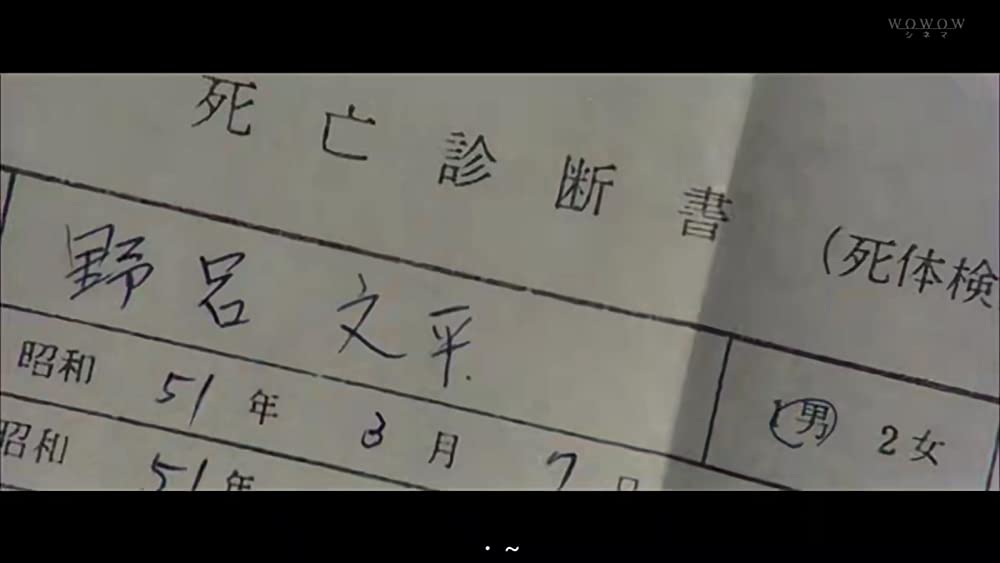 WOWOW
シネマ
死亡診断書 (死体検
野呂文平
1男 2女
昭和 51年 3月 7日
昭和 51年
· ~